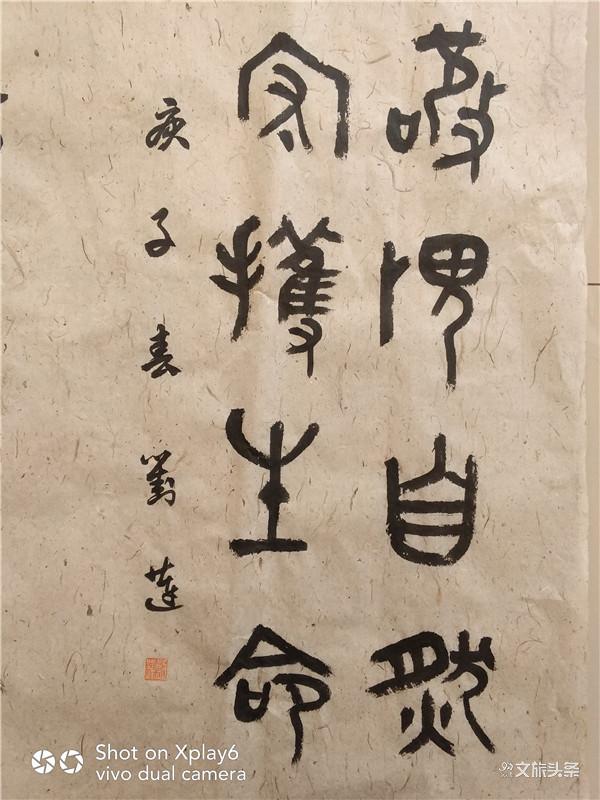 敬畏自然
守擭生命
庚子春劉蓮
Shot on Xplay6
vivo dual camera
文旅头条